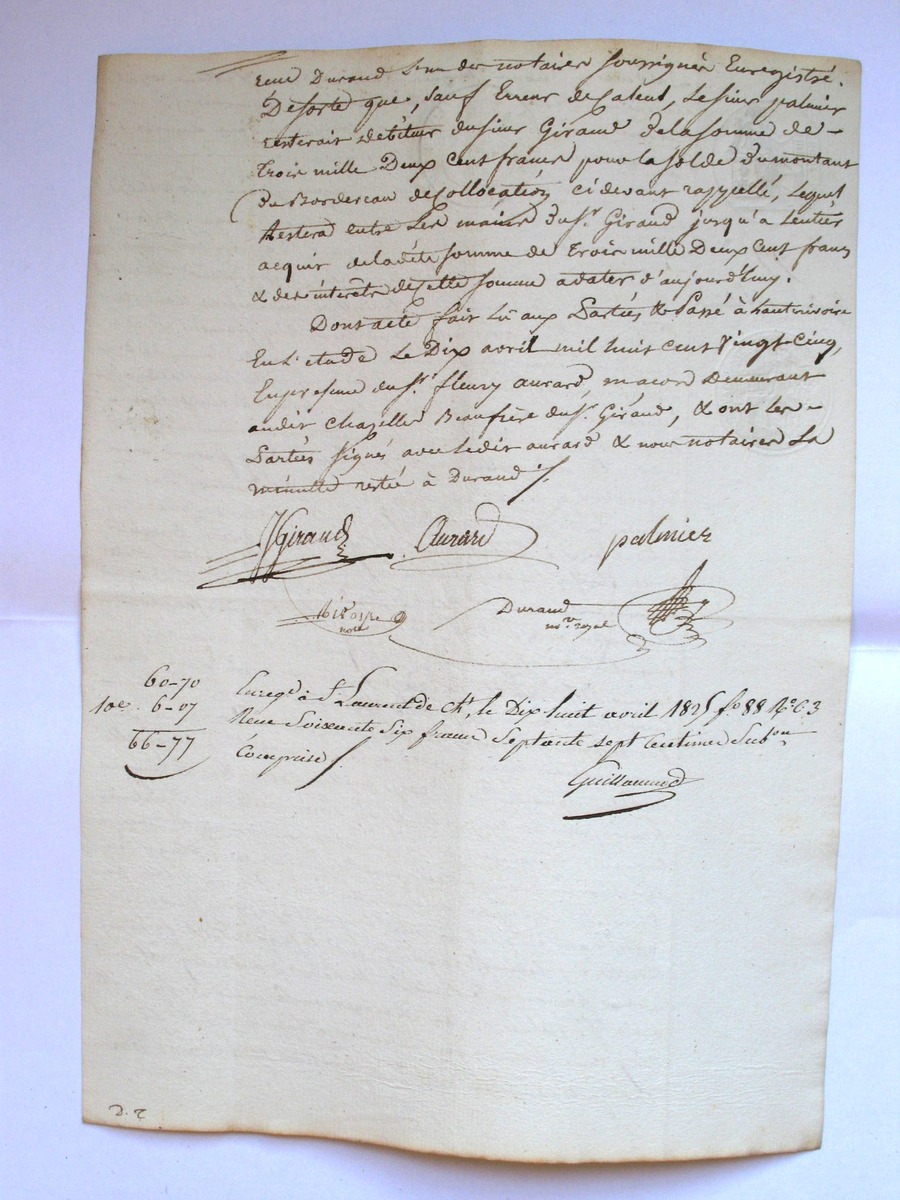 Durand l'un des notaires soussignés Enregistré.
De sorte que, sauf Erreur de Calcul, le sieur palmier
resterait débiteur du sieur Giraud de la somme de
trois mille Deux Cent francs pour la solde du montant
du Bordereau de Collocation ci devant rappellé, lequel
Restera entre les mains du Sr. Giraud jusqu'à l'entier
acquit de ladite somme de trois mille Deux Cent francs
& des intérêts de cette somme a dater d'aujourd'huy.
Dont acte fait Lû aux Parties & Passé à hauterivoire
En l'etude Le Dix avril mil huit cent vingt Cinq,
En presence du Sr. fleury aurard, macon Demeurant
audit Chazelles Beaufrere du Sr. Giraud, & ont les
Parties signés avec ledit aurard & nous notaires La
minutte restée à Durand ./.
Giraud Aurard palmier
Durand
nore. royal
60-70
10e. 6-07
66-77
Enregé. à St. Laurent de Ch. le Dix huit avril 1825 fo. 88 Ro. C. 3
Reçu Soixante Six francs Septante sept Centimes Subon.
Comprise
Guillaumod
D. 2